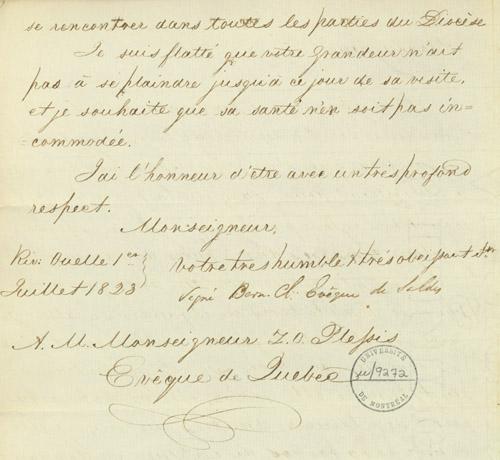 se rencontrer dans toutes les parties du Diocèse
Je suis flatté que votre Grandeur n'ait
pas à se plaindre jusqu'à ce jour de sa visite,
et je souhaite que sa santé n'en soit pas in=
commodée.
J'ai l'honneur d'être avec un très profond
respect.
Monseigneur,
Riv: Ouelle 1er
Juillet 1823
votre tres humble & très obeissant Str
Signé Bern. Cl. Evêque de Saldes
A. M. Monseigneur J. O. Plessis
Evêque de Québec
UNIVERSITÉ
/9272
DE MONTRÉAL